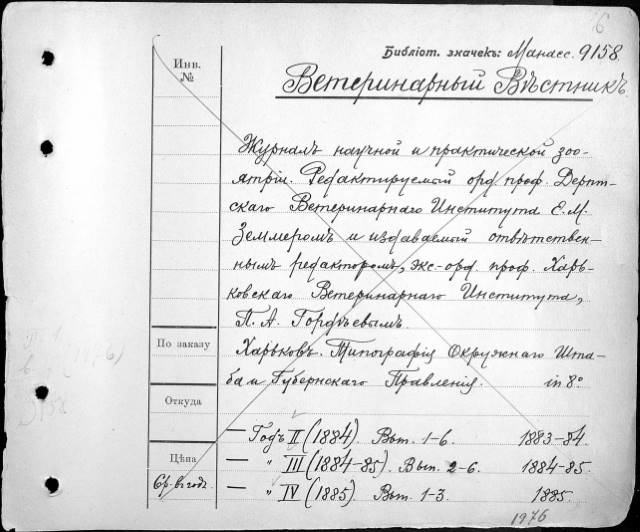 6
Библіот. значекъ: Манасс. 9158.
Инв.
№
Ветеринарный Вѣстникъ.
Журналъ научной и практической зоо-
ятріи. Редактируемой орд. проф. Дерпт-
скаго Ветеринарнаго Института Е. М.
Земмеромъ и издаваемой отвѣтствен-
нымъ редакторомъ, экс-орд. проф. Харь-
ковскаго Ветеринарнаго Института,
П. А. Гордѣевымъ.
По заказу
Харьковъ. Типографія Окружнаго Шта-
ба и Губернскаго Правленія. in 8°
Откуда
— Годъ II (1884). Вып. 1-6. 1883-84.
Цѣна
— " III (1884-85). Вып. 2-6. 1884-85.
6р. въ годъ
— " IV (1885). Вып. 1-3. 1885.
1976